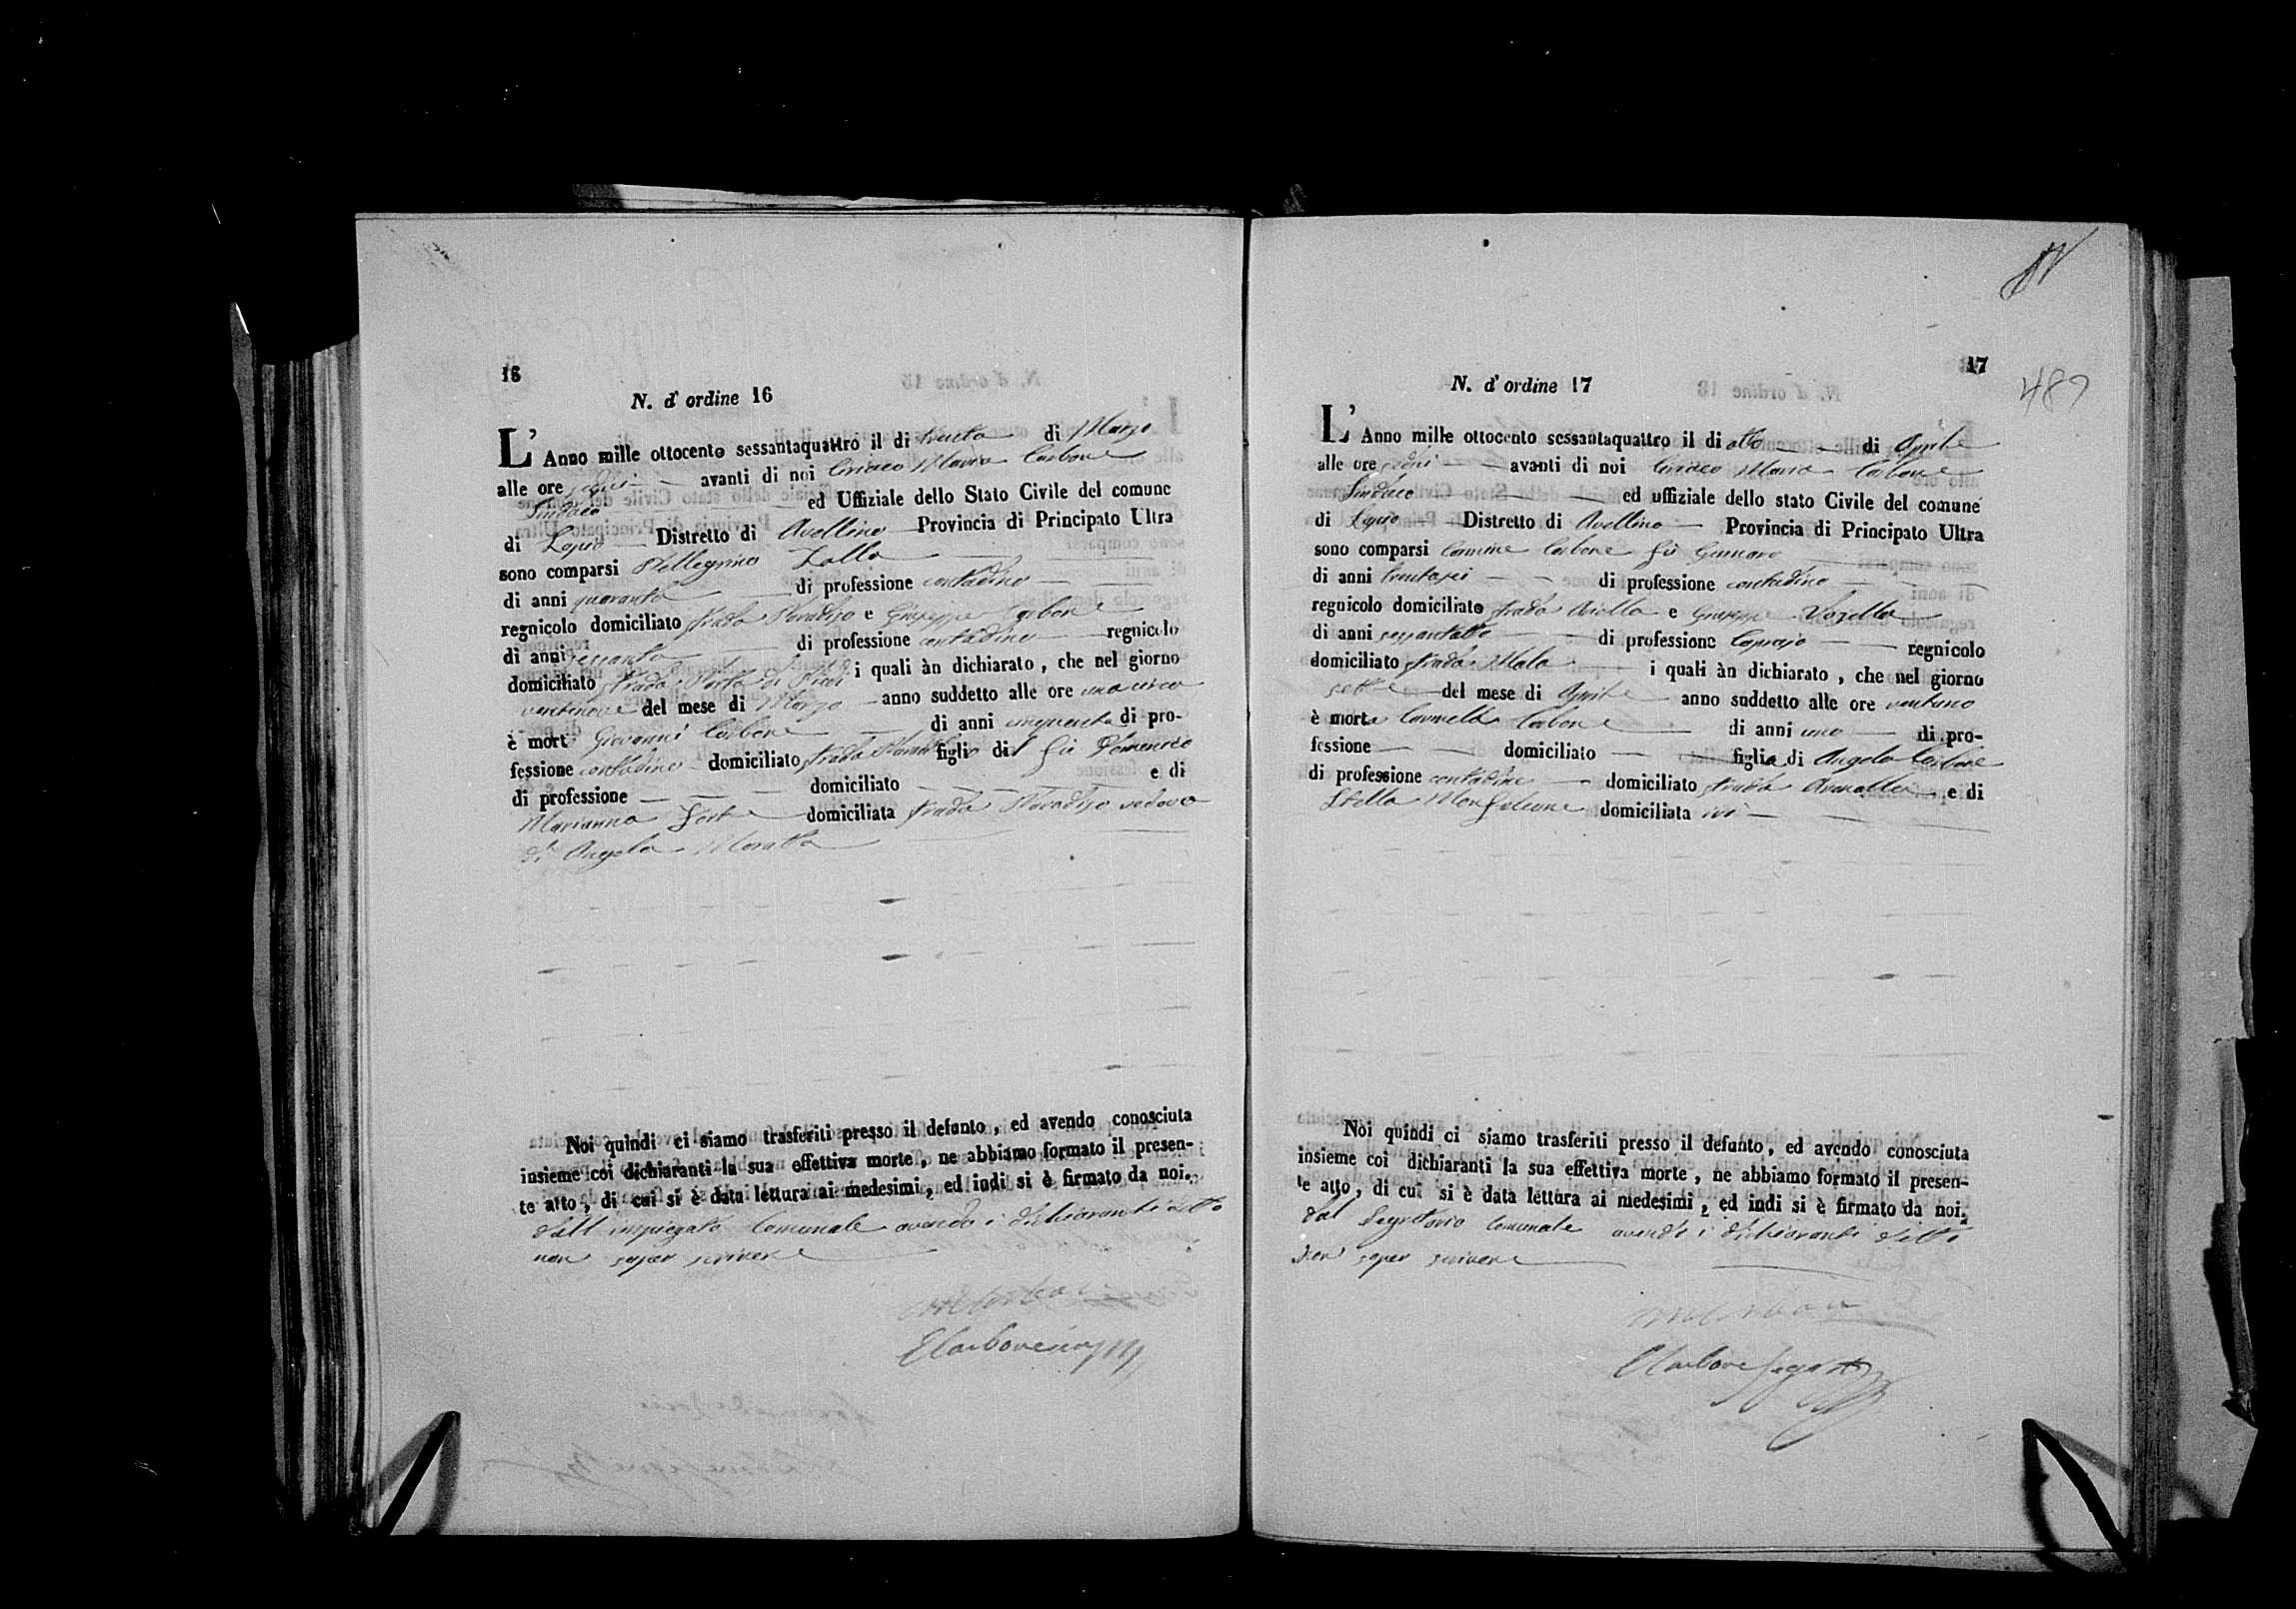 16
N. d' ordine 16
L' Anno mille ottocento sessantaquattro il di trenta di Marzo
alle ore sedici avanti di noi Ciriaco Maria Carbone
Sindaco ed Uffiziale dello Stato Civile del comune
di Lapio Distretto di Avellino Provincia di Principato Ultra
sono comparsi Pellegrino Zallo
di anni quaranta di professione contadino
regnicolo domiciliato strada Paradiso e Giuseppe Carbone
di anni sessanta di professione contadino regnicolo
domiciliato strada Porta di i quali àn dichiarato, che nel giorno
ventinove del mese di Marzo anno suddetto alle ore una circa
è mort Giovanni Carbone di anni cinquanta di pro-
fessione contadino domiciliato strada Paradiso figlio di fù Domenico
di professione domiciliato e di
Marianna Forte domiciliata strada Paradiso vedovo
di Angela Moratta
Noi quindi ci siamo trasferiti presso il defunto, ed avendo conosciuta
insieme coi dichiaranti la sua effettiva morte, ne abbiamo formato il presen-
te atto, di cui si è data lettura ai medesimi, ed indi si è firmato da noi.
dall impiegato Comunale avendo i dichiaranti detto
non saper scrivere
17
489
N. d' ordine 17
L' Anno mille ottocento sessantaquattro il di otto di Aprile
alle ore sedici avanti di noi Ciriaco Maria Carbone
Sindaco ed uffiziale dello stato Civile del comune
di Lapio Distretto di Avellino Provincia di Principato Ultra
sono comparsi Carmine Carbone fù Gennaro
di anni trentasei di professione contadino
regnicolo domiciliato strada Ariella e Giuseppe Vozella
di anni sessantotto di professione Caprajo regnicolo
domiciliato strada Mala i quali àn dichiarato, che nel giorno
sette del mese di Aprile anno suddetto alle ore ventuno
è morta Carmella Carbone di anni uno di pro-
fessione domiciliato figlia di Angelo Carbone
di professione contadino domiciliato strada e di
Stella Monfaleone domiciliata ivi
Noi quindi ci siamo trasferiti presso il defunto, ed avendo conosciuta
insieme coi dichiaranti la sua effettiva morte, ne abbiamo formato il presen-
te atto, di cui si è data lettura ai medesimi, ed indi si è firmato da noi.
dal Segretario Comunale avendo i dichiaranti detto
non saper scrivere